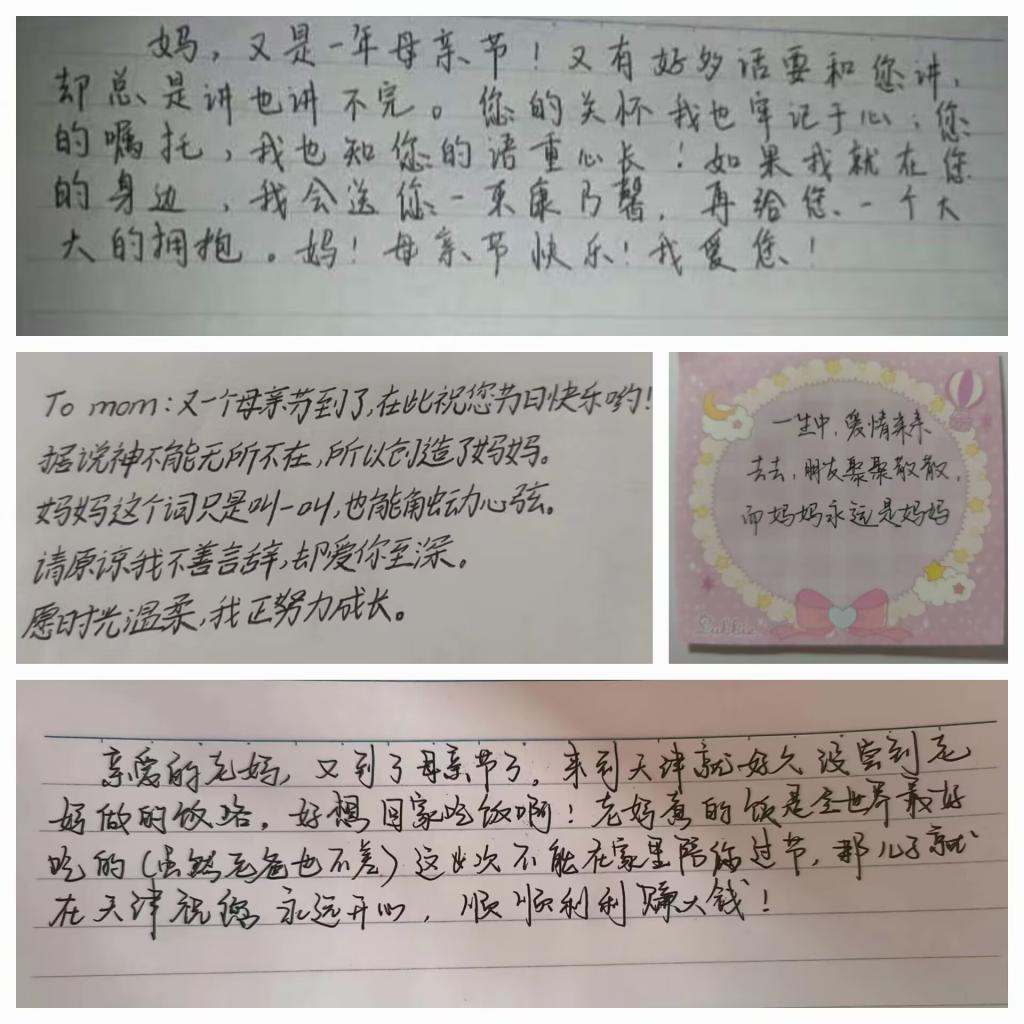 妈，又是一年母亲节！又有好多话要和您讲，
却总是讲也讲不完。您的关怀我也牢记于心；您
的嘱托，我也知您的语重心长！如果我就在您
的身边，我会送您一束康乃馨，再给您一个大
大的拥抱。妈！母亲节快乐！我爱您！
To mom：又一个母亲节到了，在此祝您节日快乐哟！
据说神不能无所不在，所以创造了妈妈。
妈妈这个词只是叫一叫，也能触动心弦。
请原谅我不善言辞，却爱你至深。
愿时光温柔，我正努力成长。
一生中，爱情来来
去去，朋友聚聚散散，
而妈妈永远是妈妈
亲爱的老妈，又到了母亲节了，来到天津就好久没尝到老
妈做的饭咯，好想回家吃饭啊！老妈煮的饭是全世界最好
吃的（虽然老爸也不差）这次不能在家里陪你过节，那儿子就
在天津祝您永远开心，顺顺利利赚大钱！